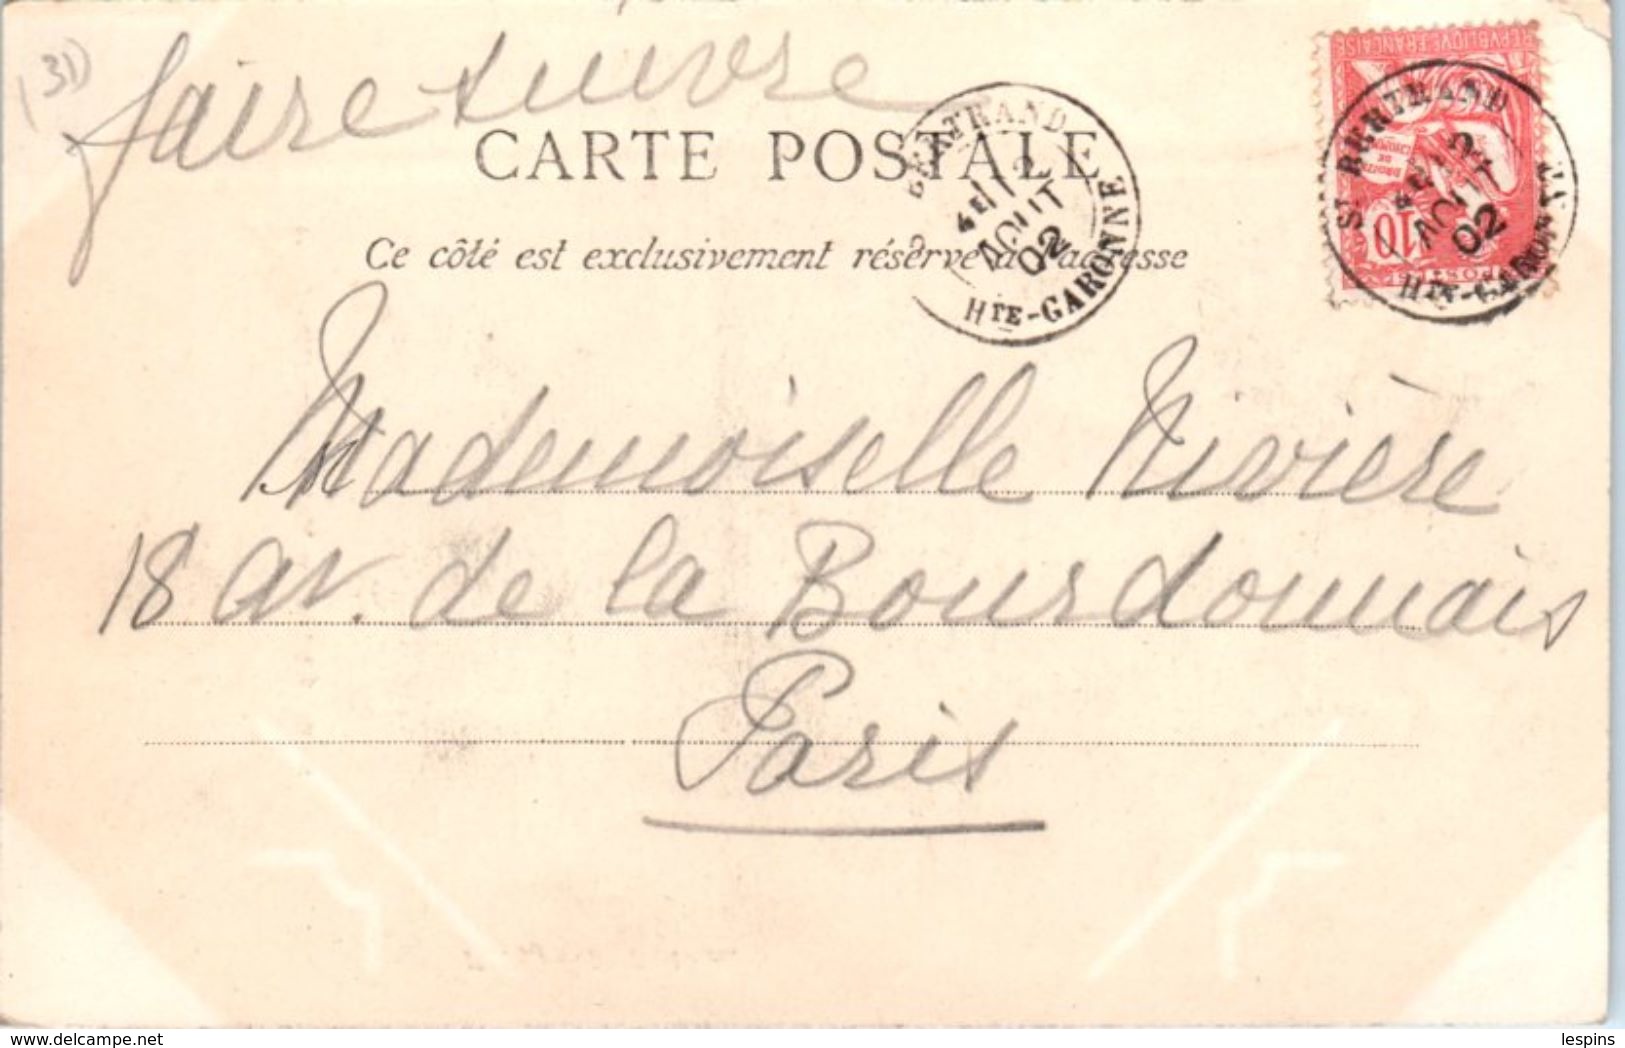 (31)
faire suivre
CARTE POSTALE
Ce côté est exclusivement réservé à l'adresse
BERTRAND
4E 12
AOUT
02
HTE-GARONNE
REPUBLIQUE FRANÇAISE
10
POSTES
ST BERTRAND
AOUT
02
HTE-GARONNE
Mademoiselle Rivière
18 av. de la Bourdonnais
Paris
www.delcampe.net
lespins